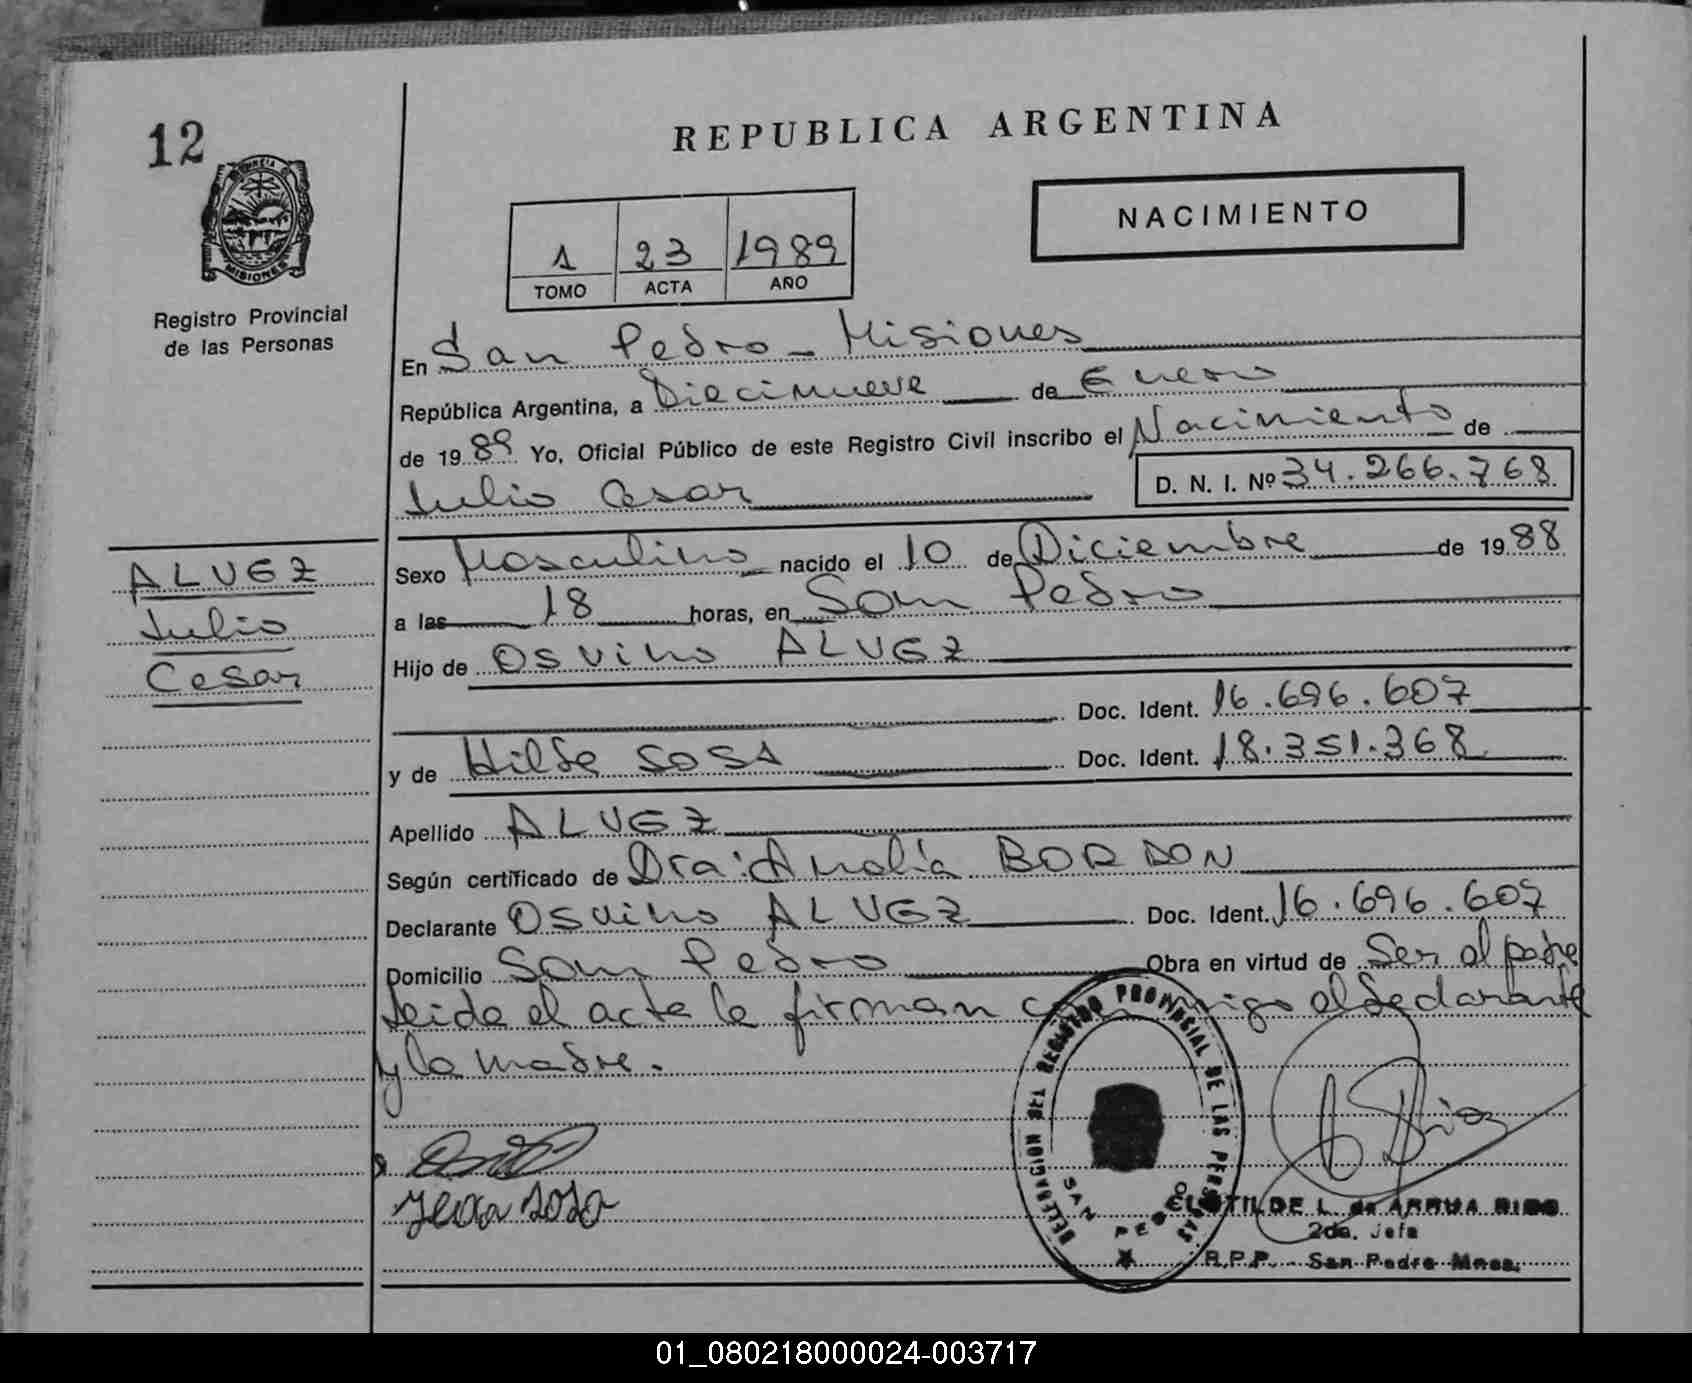 12
REPUBLICA ARGENTINA
NACIMIENTO
1 23 1989
TOMO ACTA AÑO
MISIONES
Registro Provincial
de las Personas
En San Pedro - Misiones
República Argentina, a Diecinueve de Enero
de 1989 Yo, Oficial Público de este Registro Civil inscribo el Nacimiento de
Julio Cesar D. N. I. Nº 34.266.768
ALVEZ
Julio
Cesar
Sexo Masculino nacido el 10 de Diciembre de 1988
a las 18 horas, en San Pedro
Hijo de Osvino ALVEZ
Doc. Ident. 16.696.607
y de Hilda SOSA Doc. Ident. 18.351.368
Apellido ALVEZ
Según certificado de Dra: Analía BORDON
Declarante Osvino ALVEZ Doc. Ident. 16.696.607
Domicilio San Pedro Obra en virtud de Ser el padre
Leida el acta la firman conmigo el declarante
y la madre.
sosa
DELEGACION DEL REGISTRO PROVINCIAL DE LAS PERSONAS
SAN PEDRO
CLOTILDE L. de ARRUA RIOS
2da. Jefa
R.P.P. - San Pedro Mnes.
01_080218000024-003717